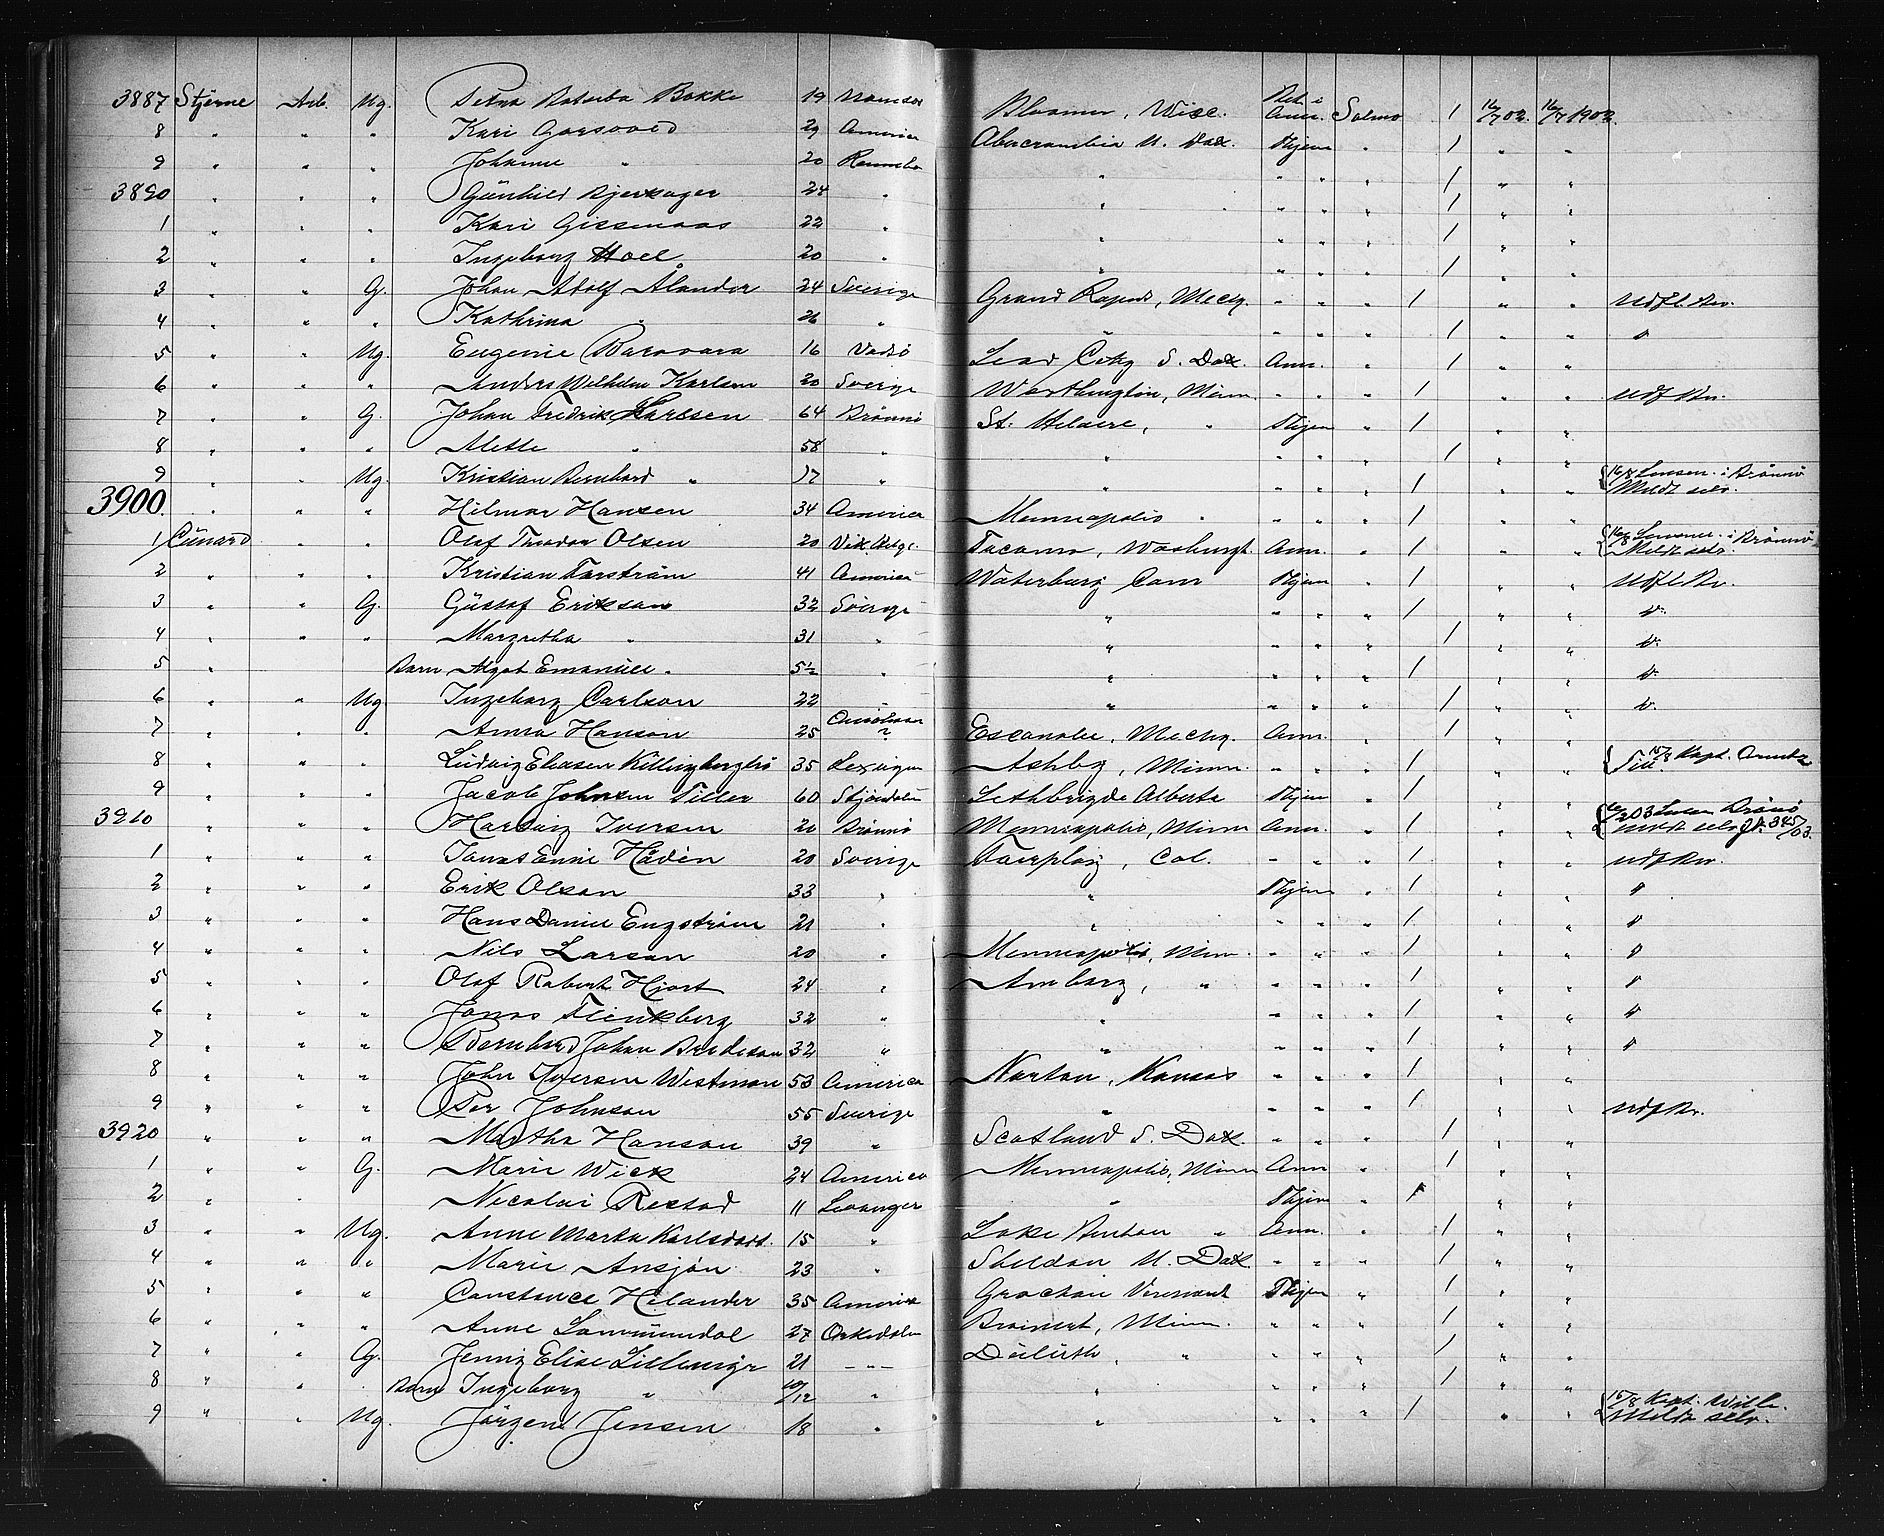 3887 Stjerne Arb. Ug. Petra Bakke 19 Namsos Bloomer, Wisc. Bet. i Amr. Salmo 1 16/7 02. 16/7 1902.
8 " " " Kari Gorsvold 29 America Abercrombia N. Dak. Hjem " 1 " "
9 " " " Johanne " 20 " " " " 1 " "
3890 " " " Gunhild Bjerkager 24 " " " " " 1 " "
1 " " " Kari 22 " " " " " 1 " "
2 " " " Ingeborg Hoel 20 " " " " " 1 " "
3 " " G. Johan Adolf Ålander 24 Sverige Grand Rapids, Mechg. " " " 1 " " Udfl. Bev.
4 " " " Kathrina " 26 " " " " " 1 " " "
5 " " Ug. Eugenie 16 Vadsö Lead City S. Dak. Amr. " 1 " "
6 " " " Anders Wilhelm Karlson 20 Sverige Worthington, Minn. " " " 1 " " Udf Bev.
7 " " G. Johan Fredrik Karlsen 64 Brönnö St. Helaere, " Hjem " 1 " "
8 " " " Mette " 58 " " " " " 1 " "
9 " " Ug. Kristian Bernhard " 17 " " " " " 1 " " 16/8 Lensm. i Brönnö Meldt selv.
3900 " " " Hilmar Hansen 34 America Menneapolis " " " " 1 " "
1 Cunard " " Olaf Theodor Olsen 20 Vik, Helge. Tacoma, Washingt. Amr. " 1 " " 16/8 Lensm. i Brönnö Meldt selv.
2 " " " Kristian Forström 41 America Waterbury Conn Hjem " 1 " " Udfl. Bev.
3 " " G. Gustaf Erikson 32 Sverige " " " " 1 " " "
4 " " " Margretha " 31 " " " " " 1 " " "
5 " Barn Algot Emanuel " 5½ " " " " " 1 " " "
6 " " Ug Ingeborg Carlson 22 " " " " " 1 " " "
7 " " " Anna Hanson 25 ? Escanabe, Mechg. Amr. " 1 " "
8 " " " Ludvig Eliasen 35 Lexvigen Ashby, Minn. " " " 1 " " 15/8 Kapt.
9 " " " Jacob Johnsen Tiller 60 Stjördalen Lethbrigde Alberta Hjem " 1 " "
3910 " " " Hartvig Iversen 20 Brönnö Menneapolis, Minn Amr. " 1 " " Meldt selv Jr. 345/03.
1 " " " Jonas Hådén 20 Sverige Fairplay, Col. " " " 1 " " Udf Bev.
2 " " " Erik Olson 33 " " Hjem " 1 " " "
3 " " " Hans Daniel Engström 21 " " " " " 1 " " "
4 " " " Nils Larson 20 " Menneapolis, Minn. " " " 1 " " "
5 " " " Olaf Robert Hjort 24 " Amborg, " " " " 1 " " "
6 " " " Jonas Flinkberg 32 " " " " " 1 " " "
7 " " " Bernhard Johan Bredeson 32 " " " " " 1 " " "
8 " " " John Iversen Westman 53 America Norton, Kansas " " " 1 " "
9 " " " Per Johnson 55 Sverige " " " " 1 " " Udf Bev.
3920 " " " Martha Hanson 39 " Scotland S. Dak. " " " 1 " "
1 " " G. Marie Wick 24 America Menneapolis, Minn Amr " 1 " "
2 " " Necolai Restad 11 Levanger " Hjem " 1 " "
3 " " Ug. Anne Marta Karlsdatt. 15 " Lake Benton " Amr. " 1 " "
4 " " " Marie Ansjön 23 " Sheldon N. Dak. " " " 1 " "
5 " " " Constance Hilander 35 America Grocton Vermont Hjem " 1 " "
6 " " " Anne 27 Orkedalen Brainert, Minn. " " " 1 " "
7 " " G. Jenny Elise Lillemyr 21 " Duluth, " " " " 1 " "
8 " " Barn Ingeborg " 10/12 " " " " " 1 " "
9 " " Ug. Jörgen Jensen 18 " " " " " 1 " " 15/8 Kapt. Wille. Meldt selv.